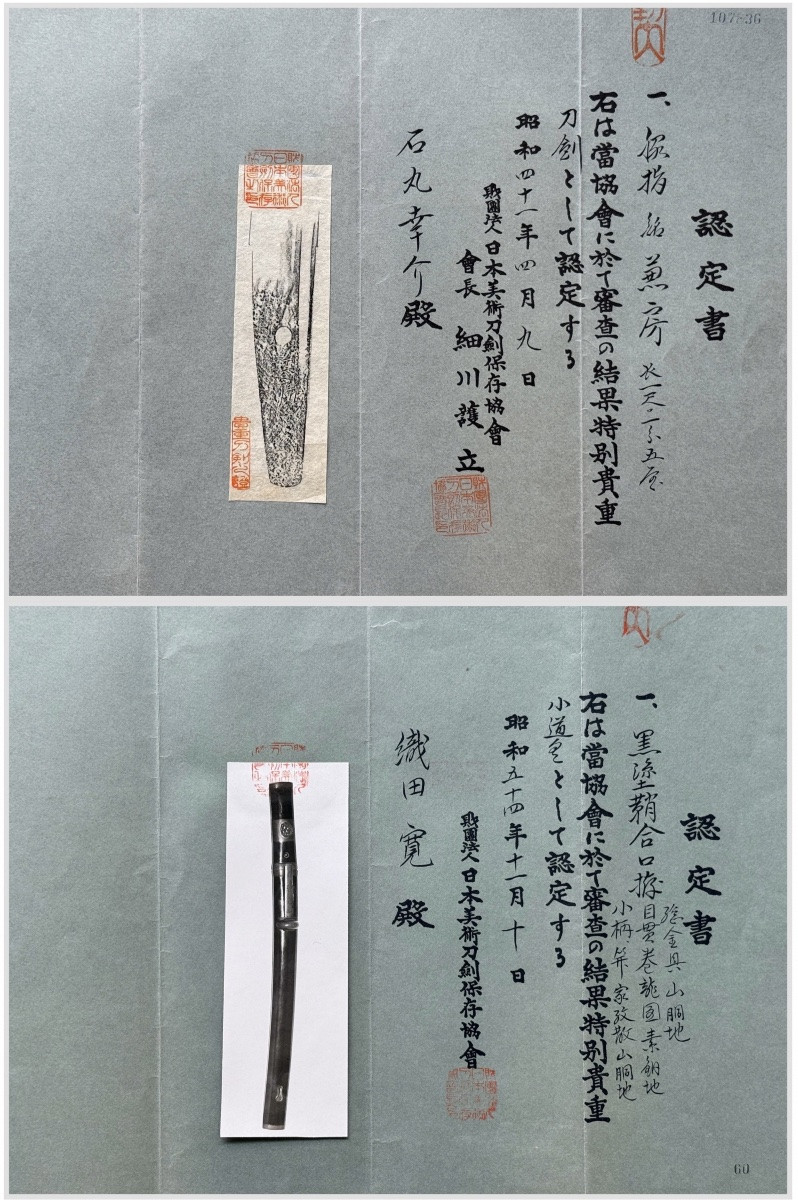 107836
認定書
一、脇指 銘 兼房 長一尺二分五厘
右は當協會に於て審査の結果特別貴重
刀劍として認定する
昭和四十一年四月九日
財團法人日本美術刀劍保存協會
會長 細川護立
石丸幸介殿
認定書
一、黒塗鞘合口拵
総金具山胴地
目貫巻龍図素銅地
小柄、笄家紋散山胴地
右は當協會に於て審査の結果特別貴重
小道具として認定する
昭和五十四年十一月十日
財團法人日本美術刀劍保存協會
織田寛殿
60